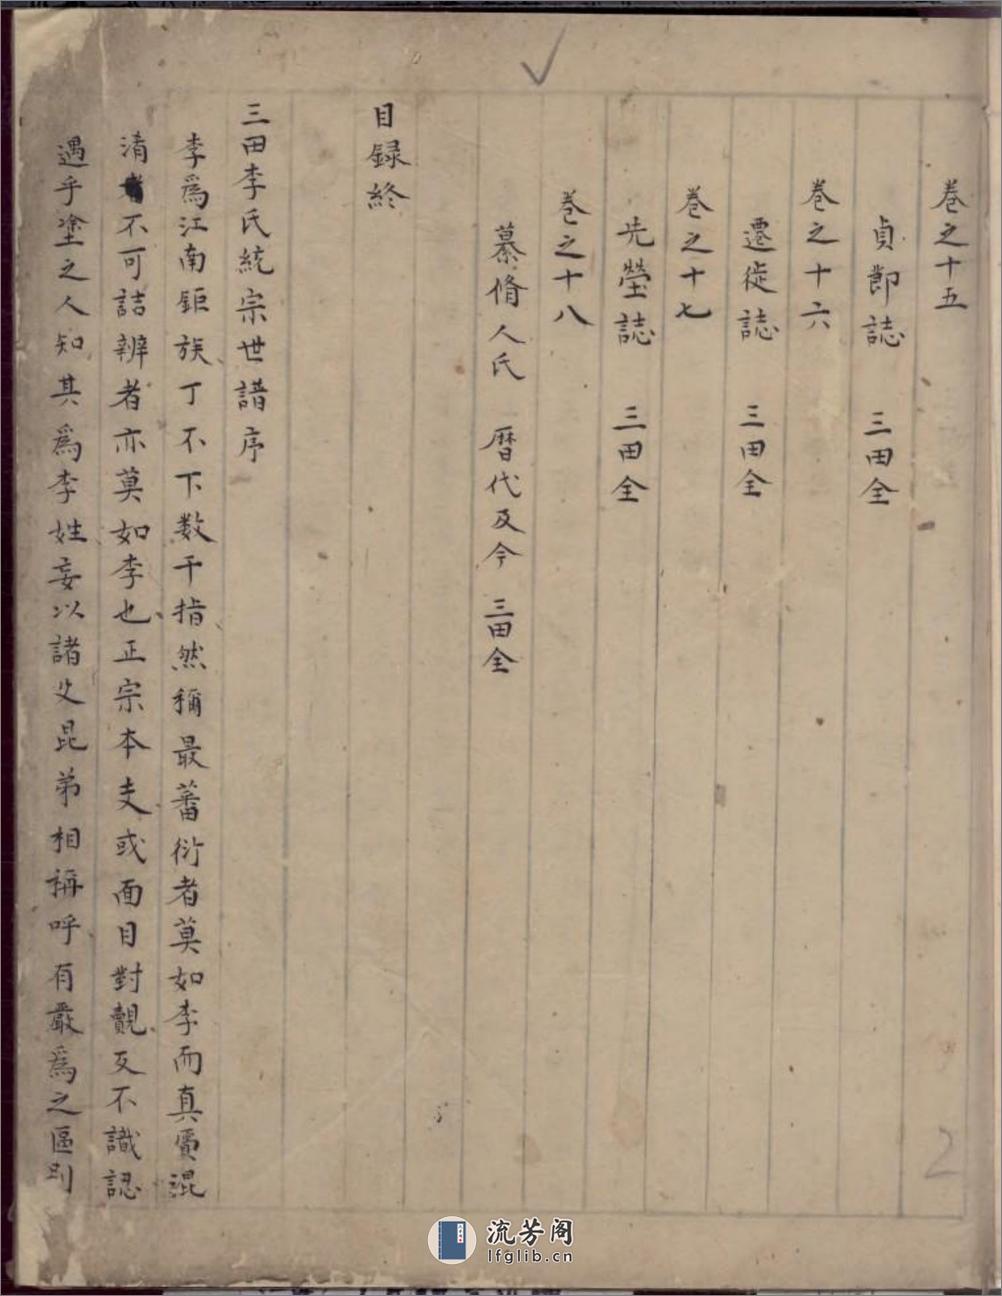 卷之十五
貞節誌 三田仝
卷之十六
遷徙誌 三田仝
卷之十七
先塋誌 三田仝
卷之十八
纂脩人氏 曆代及今 三田仝
目録終
三田李氏統宗世譜序
李爲江南鉅族丁不下数千指然稱最蕃衍者莫如李而真贗混
淆不可詰辨者亦莫如李也正宗本支或面目對覿反不識認
遇乎塗之人知其爲李姓妄以諸父昆弟相稱呼有嚴爲之區別
2
流芳阁
lfglib.cn